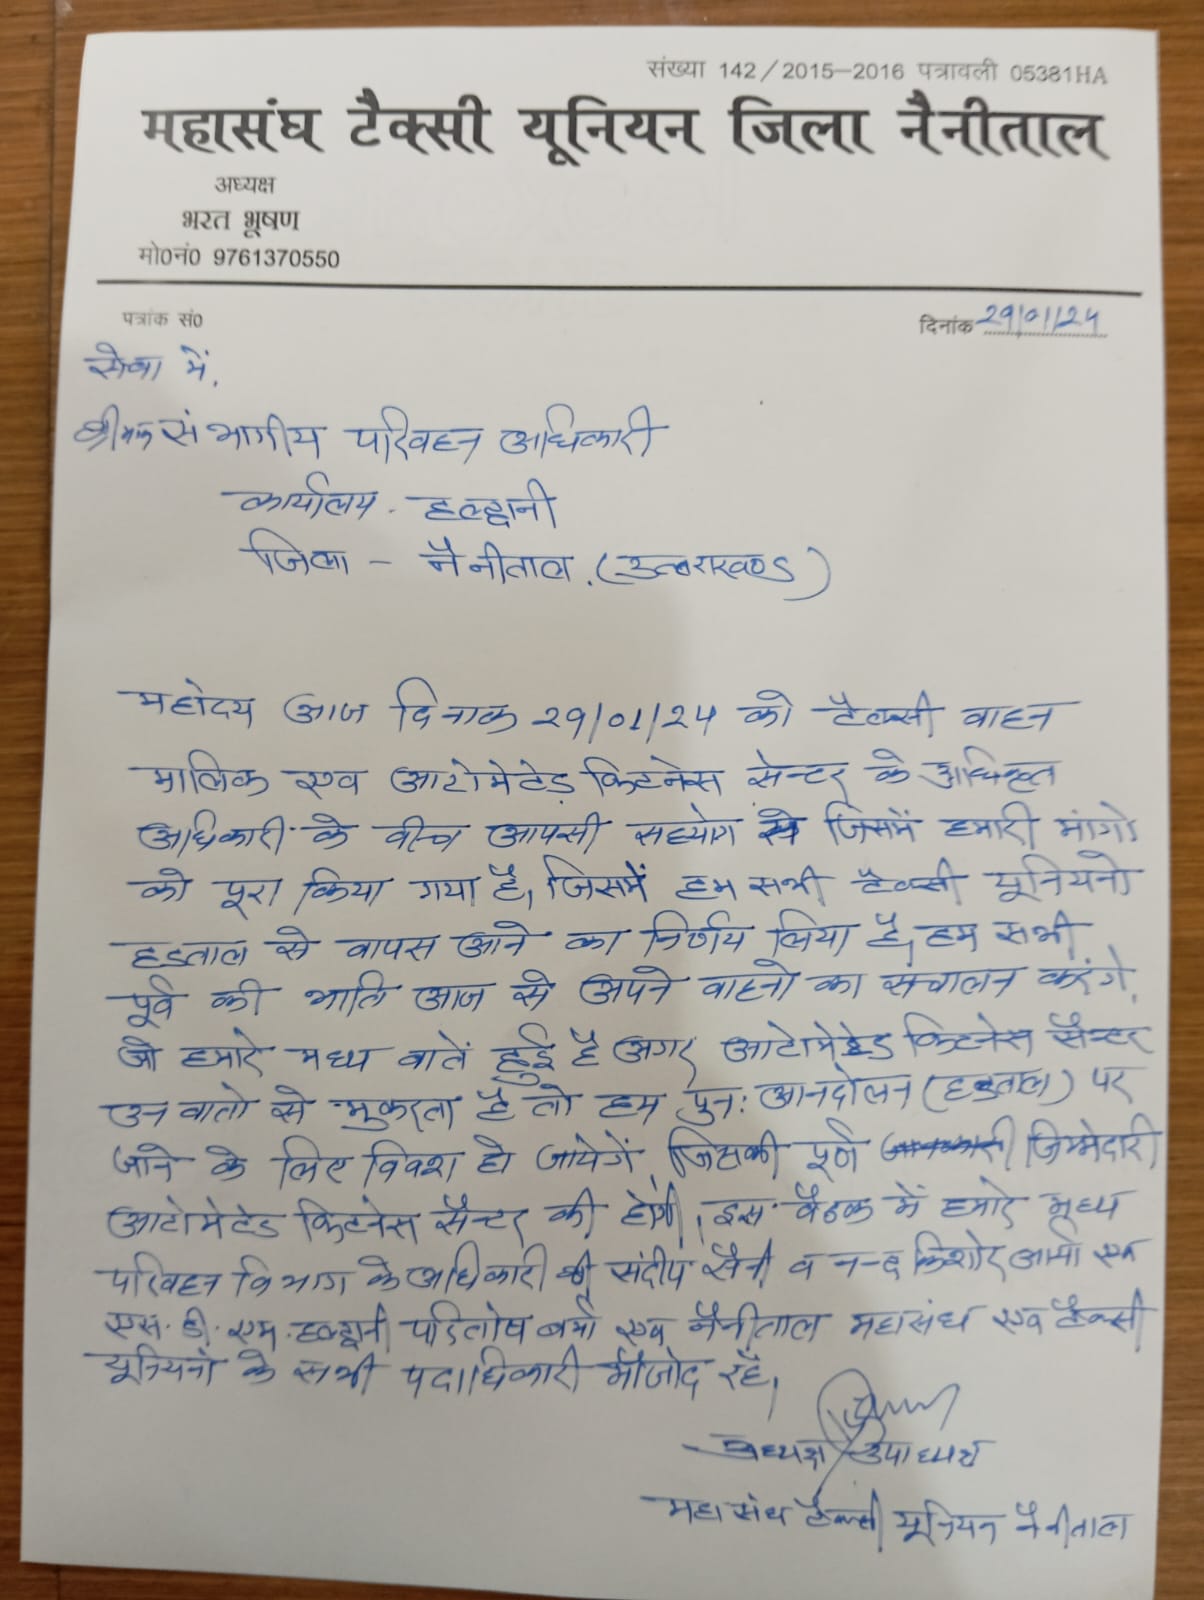 संख्या 142/2015-2016 पत्रावली 05381HA
महासंघ टैक्सी यूनियन जिला नैनीताल
अध्यक्ष
भरत भूषण
मो0नं0 9761370550
पत्रांक सं0
दिनांक 29/01/24
सेवा में,
संभागीय परिवहन अधिकारी
कार्यालय - हल्द्वानी
जिला - नैनीताल (उत्तराखण्ड)
महोदय आज दिनाक 29/01/24 को टैक्सी वाहन
मालिक एव आटोमेटेड फिटनेस सेन्टर के अधिकृत
अधिकारी के बीच आपसी सहयोग से जिसमें हमारी मांगो
को पूरा किया गया है, जिसमें हम सभी टैक्सी यूनियनो
हडताल से वापस आने का निर्णय लिया है, हम सभी
पूर्व की भाति आज से अपने वाहनो का सचालन करेंगे,
जो हमारे मध्य बातें हुई है अगर आटोमेटेड फिटनेस सैन्टर
उन बातो से मुकरता है तो हम पुन: आनदोलन (हडताल) पर
जाने के लिए विवश हो जायेगें, जिसकी पूर्ण जिम्मेदारी
आटोमेटेड फिटनेस सैन्टर की होगी, इस बैठक में हमारे मध्य
परिवहन विभाग के अधिकारी श्री संदीप सैनी व नन्द किशोर आर्या एव
एस.डी.एम.हल्द्वानी परितोष वर्मा एव नैनीताल महासंघ एव टैक्सी
यूनियनो के सभी पदाधिकारी मौजोद रहे,
अध्यक्ष/उपाध्यक्ष
महासंघ टैक्सी यूनियन नैनीताल